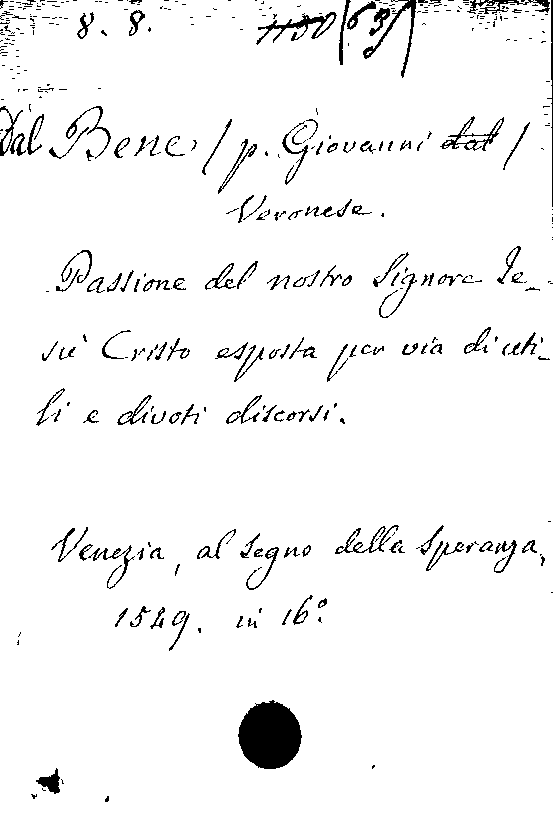 8. 8. 1130 (63)
Dal Bene / p. Giovanni dal /
Veronese.
Passione del nostro Signore Ie_
sù Cristo esposta per via di uti_
li e divoti discorsi.
Venezia, al segno della Speranza,
1549. in 16º